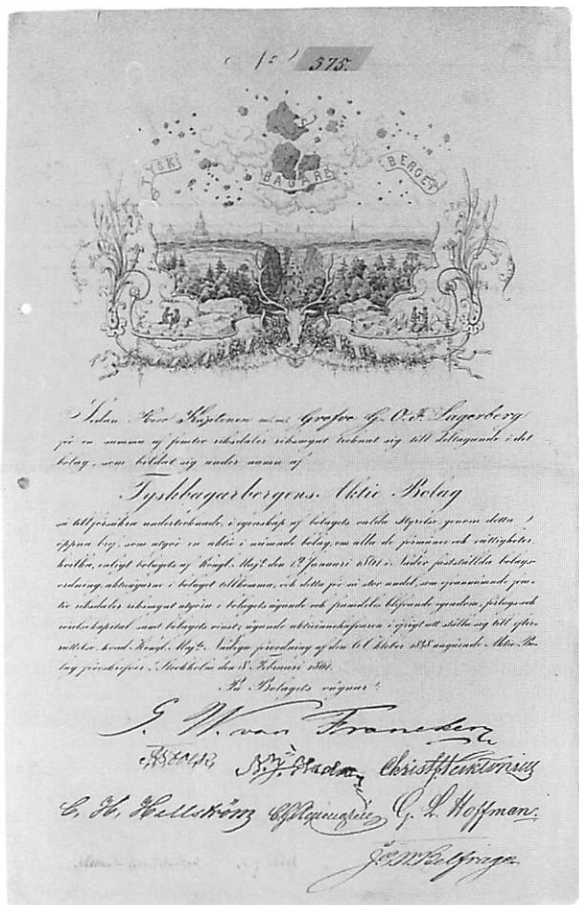 No 375.
TYSK BAGARE BERGET
Sedan Herr Kaptenen m.m. Grefve G. O. F. Lagerberg
för en summa af femtio riksdaler riksmynt tecknat sig till deltagande i det
bolag, som bildat sig under namn af
Tyskbagarbergens Aktie Bolag
så tillförsäkra undertecknade, i egenskap af bolagets valda Styrelse genom detta
öppna bref, som utgör en aktie i nämnde bolag, om alla de förmåner och rättigheter
hvilka, enligt bolagets af Kongl. Maj:t den 12 Januari 1861 i Nåder fastställda bolags-
ordning, aktieegarne i bolaget tillkomma, och detta för så stor andel, som ofvannämnde fem-
tio riksdaler riksmynt utgöra i bolagets egande och framdeles blifvande egendom, förlags och
rörelsekapital samt bolagets vinst, egande aktieinnehafvaren i öfrigt att ställa sig till efter-
rättelse hvad Kongl. Maj:ts Nådiga förordning af den 6 Oktober 1848 angående Aktie Bo-
lag föreskrifver. Stockholm den 8 Februari 1861.
På Bolagets vägnar:
G. W. van Francken
C. H. Hellström G. L. Hoffman.